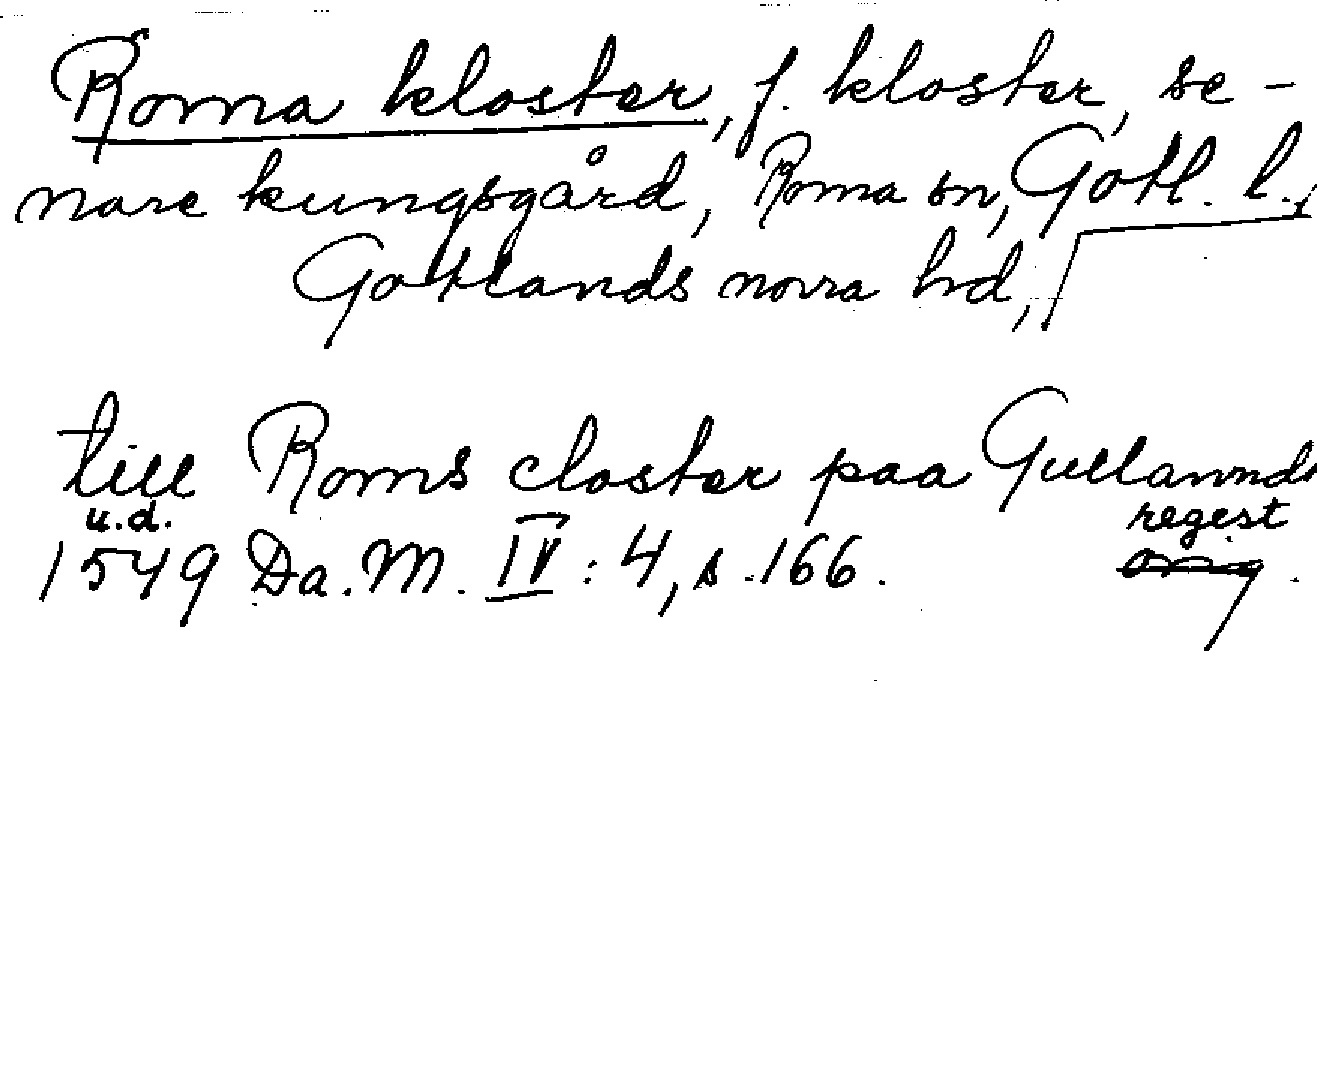 Roma kloster, f. kloster, se-
nare kungsgård, Roma sn, Gotl. l.,
Gotlands norra hd,
till Roms closter paa Gullannds
u.d. regest
1549 Da. M. IV: 4, s. 166.